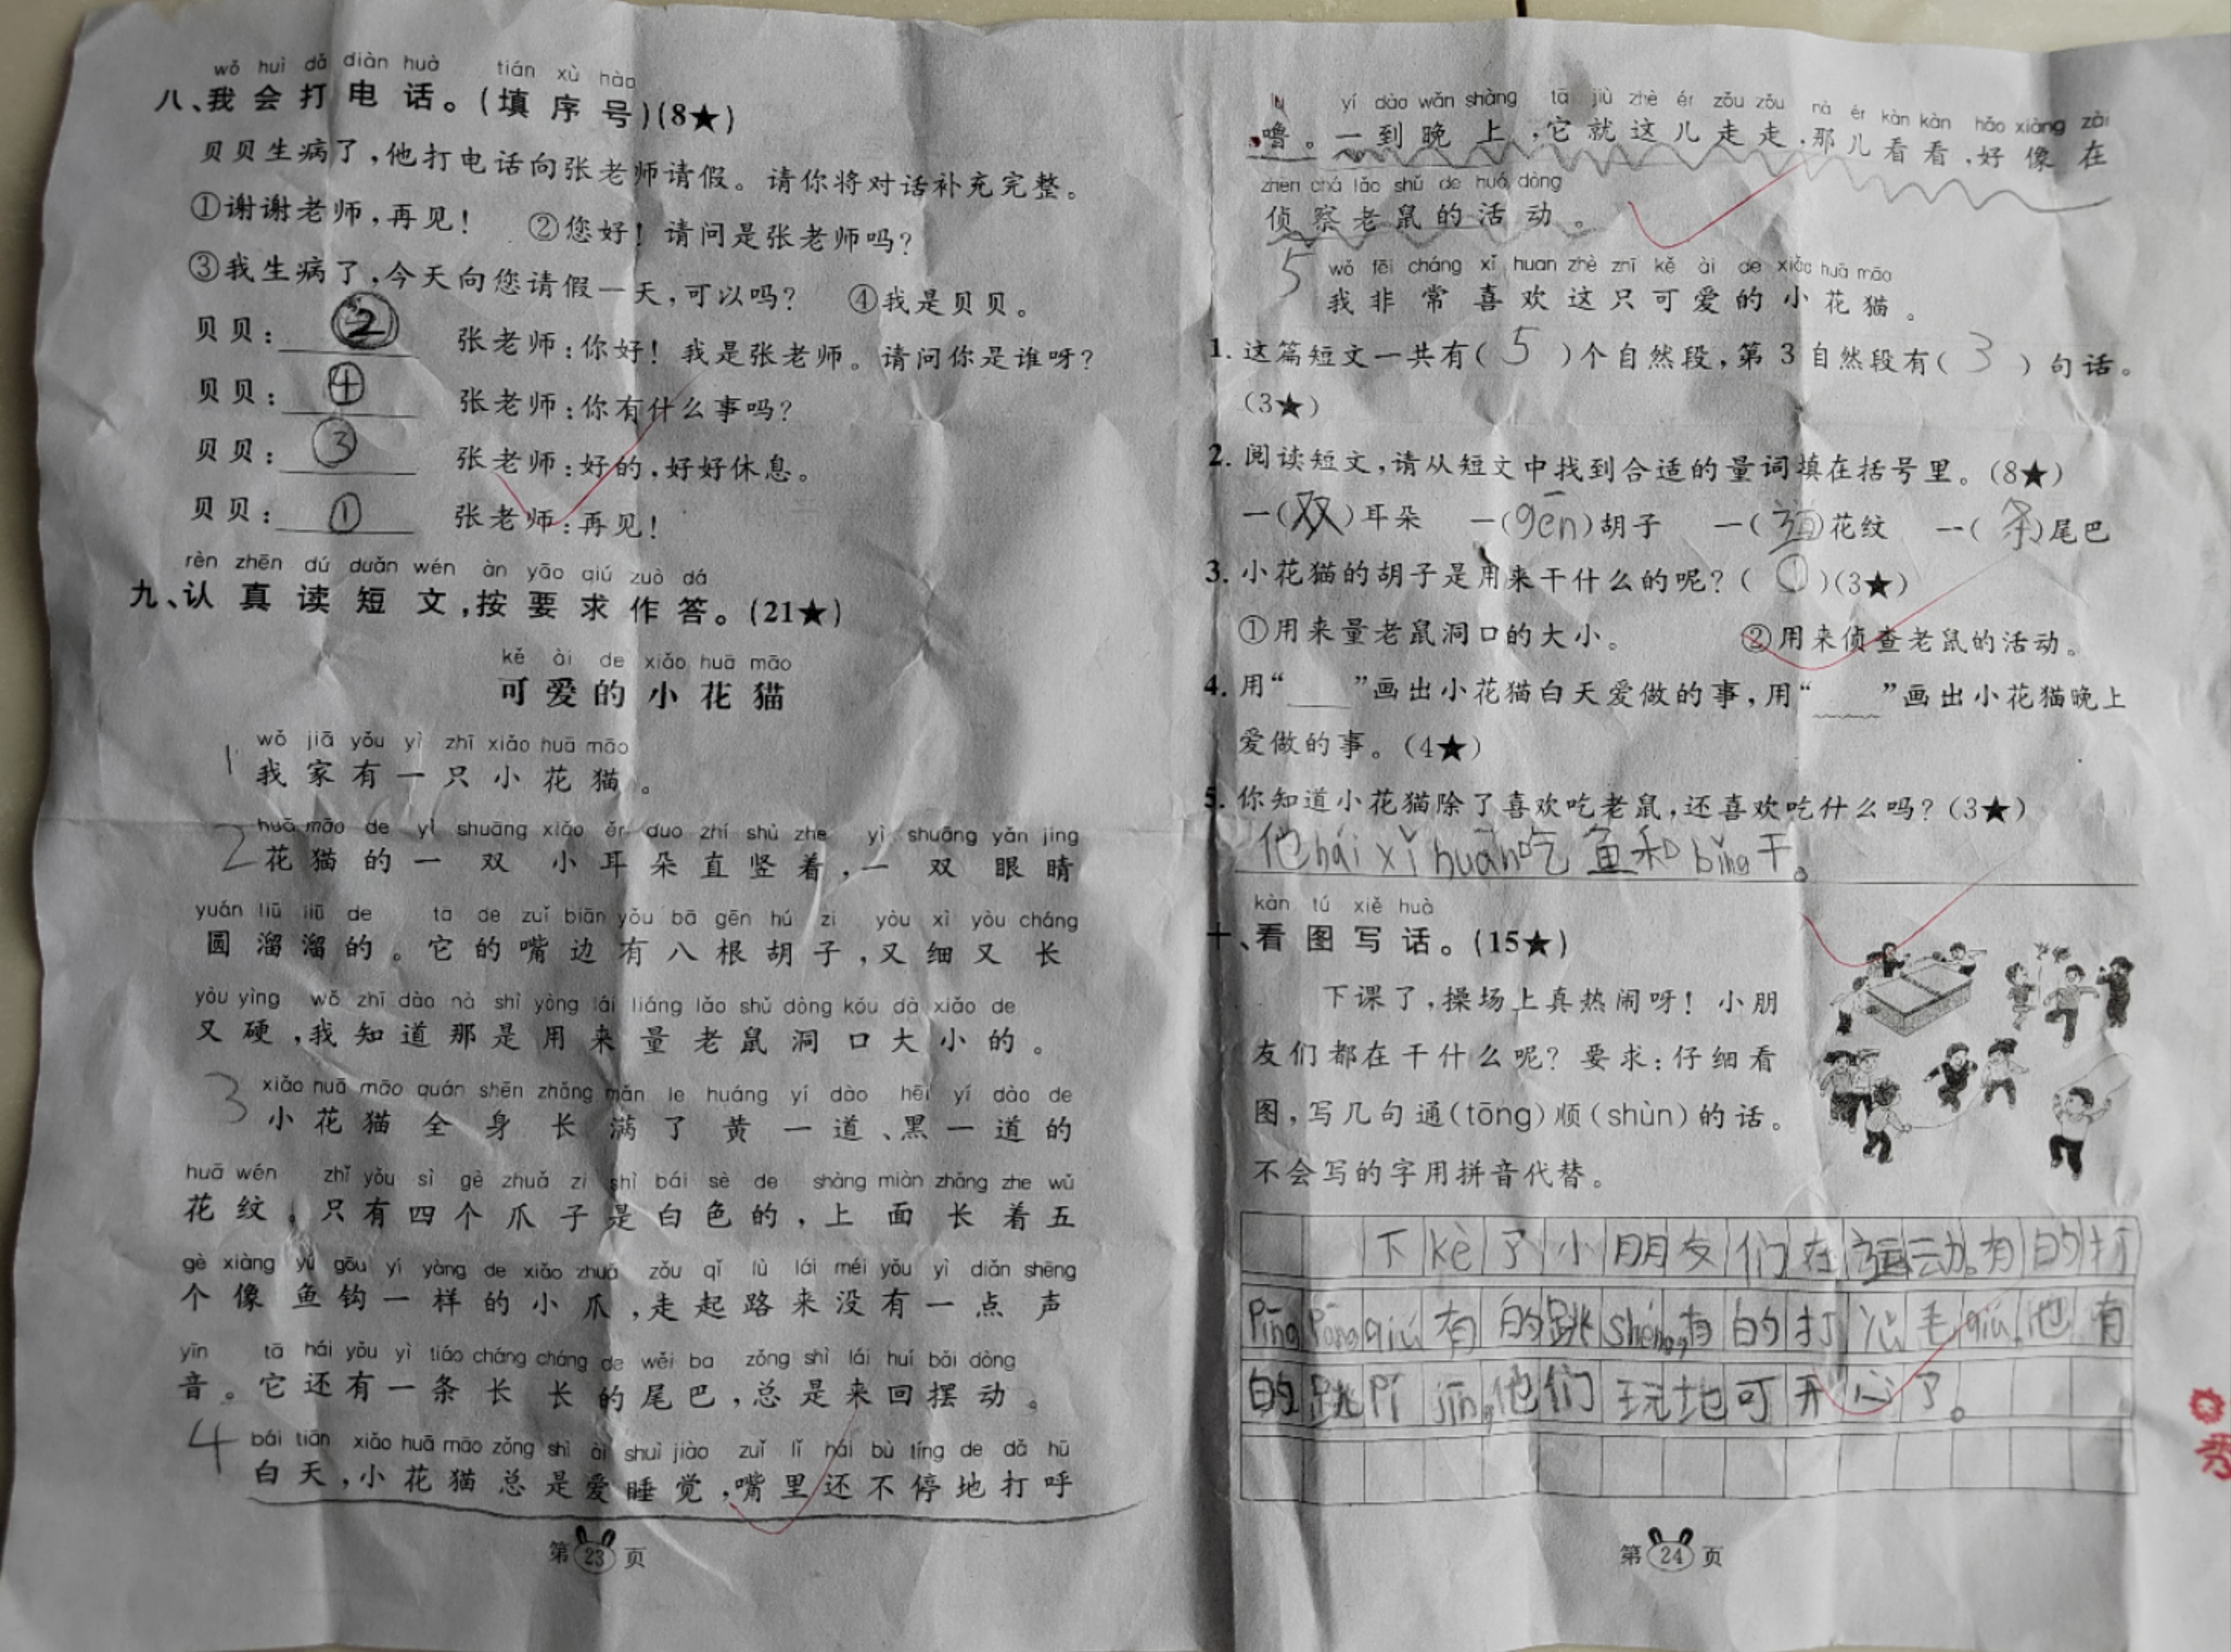 wǒ huì dǎ diàn huà tián xù hào
八、我会打电话。(填序号)(8★)
贝贝生病了,他打电话向张老师请假。请你将对话补充完整。
①谢谢老师,再见! ②您好!请问是张老师吗?
③我生病了,今天向您请假一天,可以吗? ④我是贝贝。
贝贝:② 张老师:你好!我是张老师。请问你是谁呀?
贝贝:④ 张老师:你有什么事吗?
贝贝:③ 张老师:好的,好好休息。
贝贝:① 张老师:再见!
rèn zhēn dú duǎn wén àn yāo qiú zuò dá
九、认真读短文,按要求作答。(21★)
kě ài de xiǎo huā māo
可爱的小花猫
wǒ jiā yǒu yì zhī xiǎo huā māo
1 我家有一只小花猫。
huā māo de yì shuāng xiǎo ěr duo zhí shù zhe yì shuāng yǎn jing
2 花猫的一双小耳朵直竖着,一双眼睛
yuán liū liū de tā de zuǐ biān yǒu bā gēn hú zi yòu xì yòu cháng
圆溜溜的。它的嘴边有八根胡子,又细又长
yòu yìng wǒ zhī dào nà shì yòng lái liáng lǎo shǔ dòng kǒu dà xiǎo de
又硬,我知道那是用来量老鼠洞口大小的。
xiǎo huā māo quán shēn zhǎng mǎn le huáng yí dào hēi yí dào de
3 小花猫全身长满了黄一道、黑一道的
huā wén zhǐ yǒu sì gè zhuǎ zi shì bái sè de shàng miàn zhǎng zhe wǔ
花纹,只有四个爪子是白色的,上面长着五
gè xiàng yú gōu yí yàng de xiǎo zhuǎ zǒu qǐ lù lái méi yǒu yì diǎn shēng
个像鱼钩一样的小爪,走起路来没有一点声
yīn tā hái yǒu yì tiáo cháng cháng de wěi ba zǒng shì lái huí bǎi dòng
音。它还有一条长长的尾巴,总是来回摆动。
bái tiān xiǎo huā māo zǒng shì ài shuì jiào zuǐ lǐ hái bù tíng de dǎ hū
4 白天,小花猫总是爱睡觉,嘴里还不停地打呼
第23页
lu yí dào wǎn shàng tā jiù zhè ér zǒu zǒu nà ér kàn kàn hǎo xiàng zài
噜。一到晚上,它就这儿走走,那儿看看,好像在
zhēn chá lǎo shǔ de huó dòng
侦察老鼠的活动。
wǒ fēi cháng xǐ huan zhè zhī kě ài de xiǎo huā māo
5 我非常喜欢这只可爱的小花猫。
1. 这篇短文一共有(5)个自然段,第3自然段有(3)句话。
(3★)
2. 阅读短文,请从短文中找到合适的量词填在括号里。(8★)
一(双)耳朵 一(gēn)胡子 一(道)花纹 一(条)尾巴
3. 小花猫的胡子是用来干什么的呢?(①)(3★)
①用来量老鼠洞口的大小。 ②用来侦查老鼠的活动。
4. 用“___”画出小花猫白天爱做的事,用“﹏﹏”画出小花猫晚上
爱做的事。(4★)
5. 你知道小花猫除了喜欢吃老鼠,还喜欢吃什么吗?(3★)
他hái xǐ huān吃鱼和bǐng干。
kàn tú xiě huà
十、看图写话。(15★)
下课了,操场上真热闹呀!小朋
友们都在干什么呢?要求:仔细看
图,写几句通(tōng)顺(shùn)的话。
不会写的字用拼音代替。
下kè了小朋友们在运动。有的打
Pīng Pāng qiú有的跳shéng,有的打 毛qiú,也有
的跳Pí jīn,他们玩地可开心了。
第24页
秀